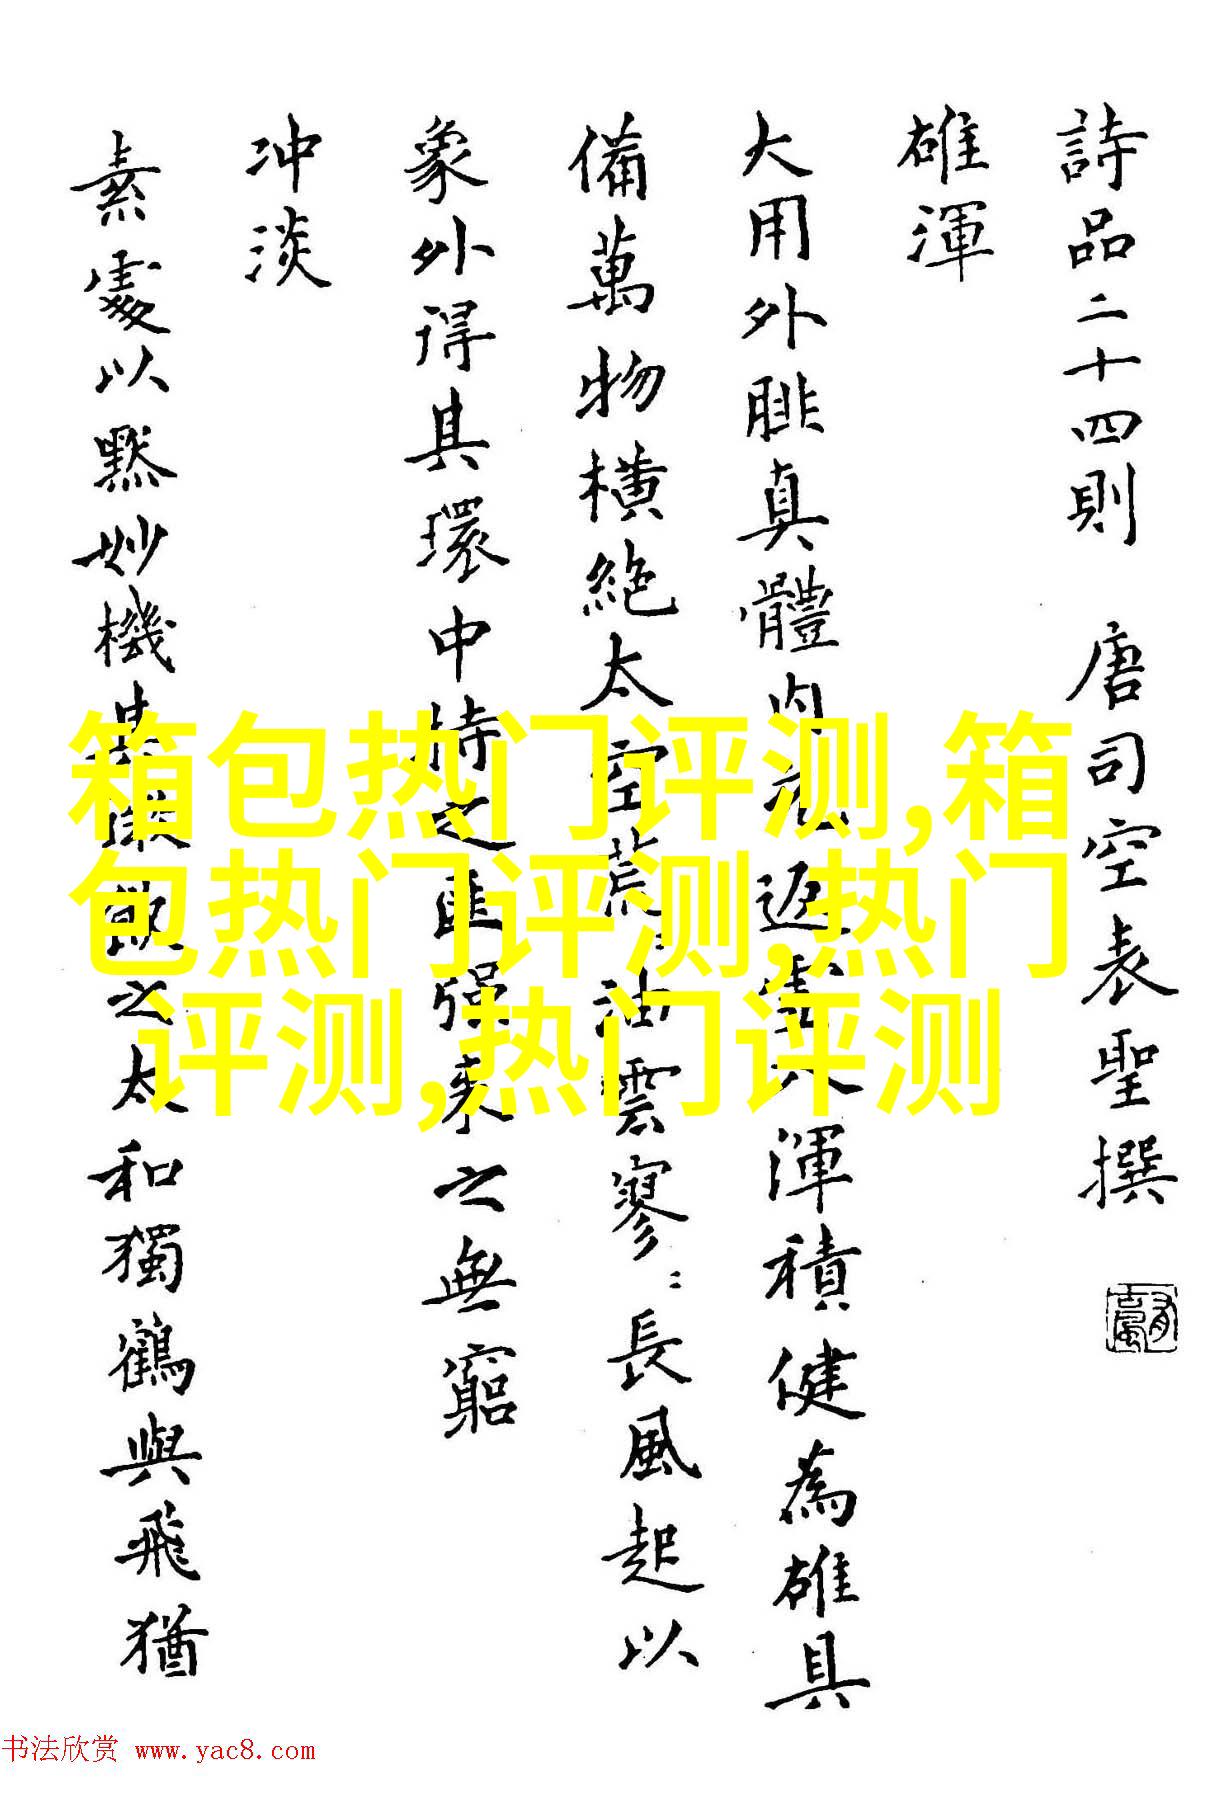 詩品二十四則 唐司空表聖撰
雄渾
大用外腓真體内充返虚入渾積健為雄具
備萬物橫絶太空荒〻油雲寥〻長風起以
象外得其環中持之匪强来之無窮
冲淡
素處以默妙機其微飲之太和獨鶴與飛猶
箱包热门评测,箱
包热门评测,热门
评测,热门评测
书法欣赏 www.yac8.com